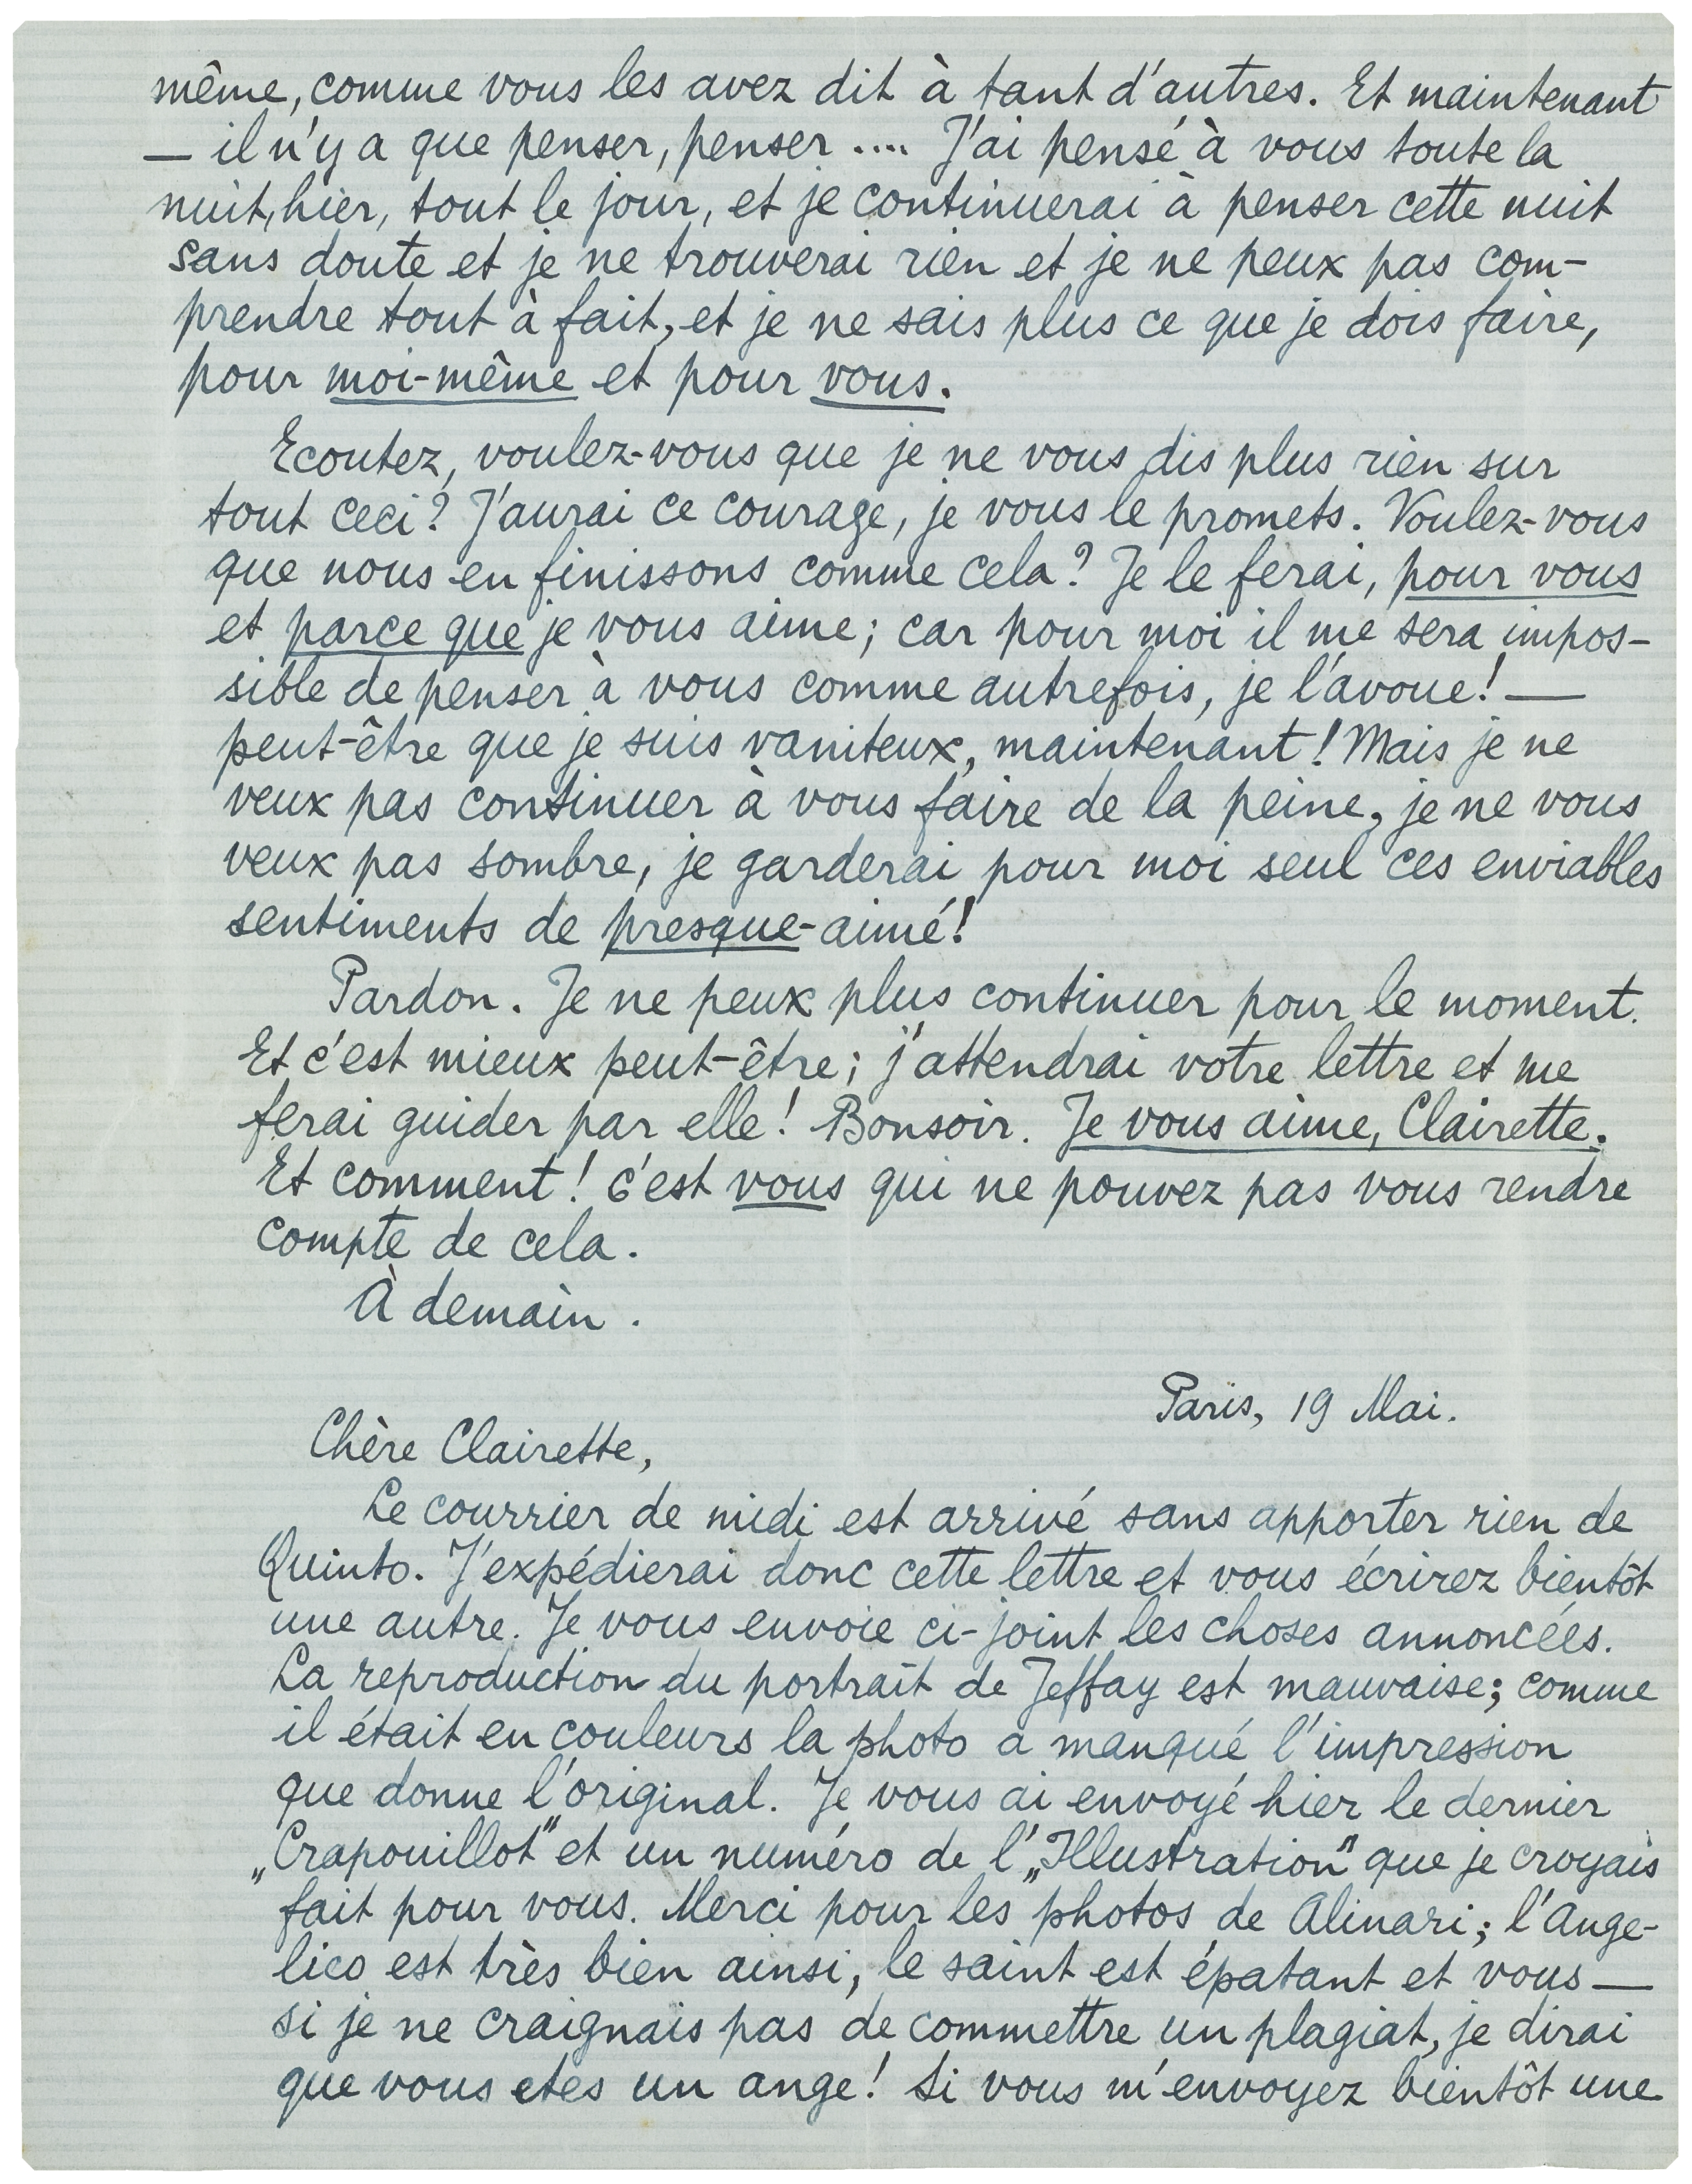 même, comme vous les avez dit à tant d'autres. Et maintenant
— il n'y a que penser, penser .... J'ai pensé à vous toute la
nuit, hier, tout le jour, et je continuerai à penser cette nuit
sans doute et je ne trouverai rien et je ne peux pas com-
prendre tout à fait, et je ne sais plus ce que je dois faire,
pour moi-même et pour vous.
Ecoutez, voulez-vous que je ne vous dis plus rien sur
tout ceci? J'aurai ce courage, je vous le promets. Voulez-vous
que nous en finissons comme cela? Je le ferai, pour vous
et parce que je vous aime; car pour moi il me sera impos-
sible de penser à vous comme autrefois, je l'avoue! —
peut-être que je suis vaniteux, maintenant! Mais je ne
veux pas continuer à vous faire de la peine, je ne vous
veux pas sombre, je garderai pour moi seul ces enviables
sentiments de presque-aimé!
Pardon. Je ne peux plus continuer pour le moment.
Et c'est mieux peut-être; j'attendrai votre lettre et me
ferai guider par elle! Bonsoir. Je vous aime, Clairette.
Et comment! C'est vous qui ne pouvez pas vous rendre
compte de cela.
À demain.
Paris, 19 Mai.
Chère Clairette,
Le courrier de midi est arrivé sans apporter rien de
Quinto. J'expédierai donc cette lettre et vous écrirez bientôt
une autre. Je vous envoie ci-joint les choses annoncées.
La reproduction du portrait de Jeffay est mauvaise; comme
il était en couleurs la photo a manqué l'impression
que donne l'original. Je vous ai envoyé hier le dernier
„Crapouillot" et un numéro de l'„Illustration" que je croyais
fait pour vous. Merci pour les photos de Alinari; l'Ange-
lico est très bien ainsi, le saint est épatant et vous —
si je ne craignais pas de commettre un plagiat, je dirai
que vous etes un ange! Si vous m'envoyez bientôt une